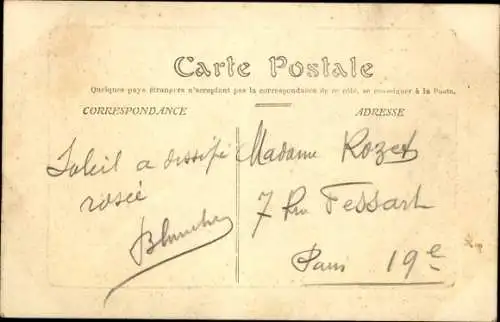 Carte Postale
Quelques pays étrangers n'acceptent pas la correspondance de ce côté, se renseigner à la Poste.
CORRESPONDANCE
ADRESSE
Soleil a dissipé
rosée
Blanche
Madame Rozet
7 Rue Fessart
Paris 19e